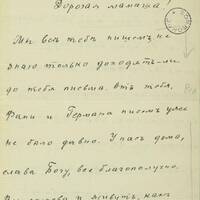 Дорогая мамаша!
Мы всѣ тебѣ пишемъ, не
знаю только доходятъ-ли
до тебя письма. Отъ тебя,
Фани и Германа писемъ уже
не было давно. У насъ дома,
слава Богу, все благополучно.
здорова и живутъ, какъ